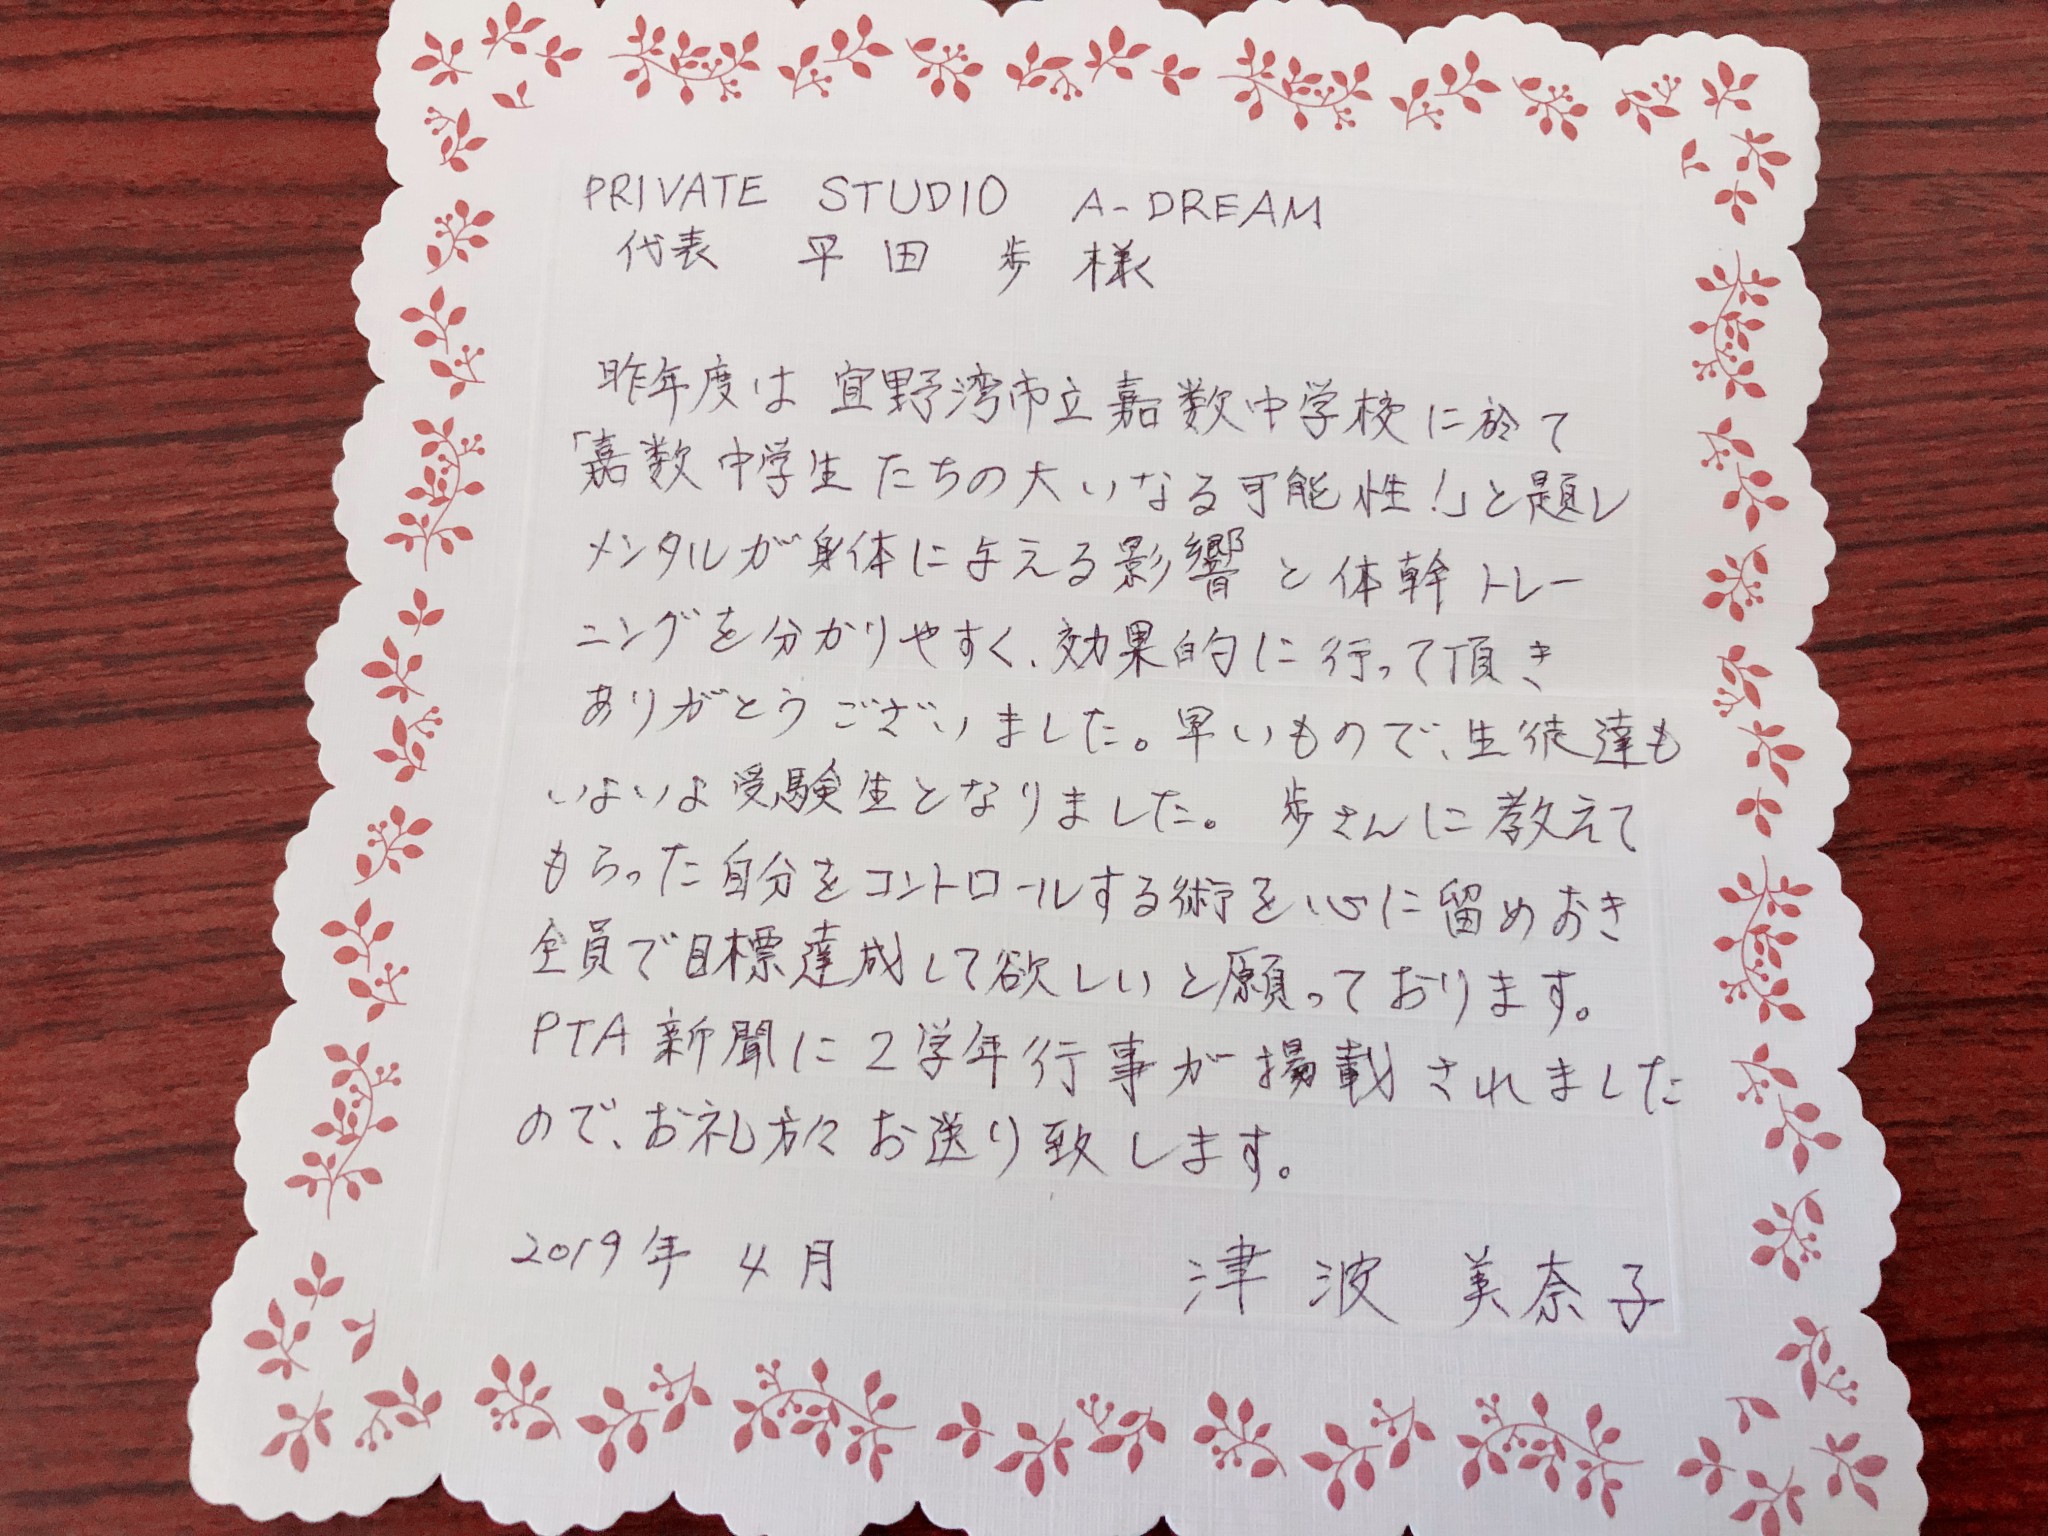 PRIVATE STUDIO A-DREAM
代表 早田 歩 様
昨年度は宜野湾市立嘉数中学校に於て
「嘉数中学生たちの大いなる可能性!」と題し
メンタルが身体に与える影響と体幹トレー
ニングを分かりやすく、効果的に行って頂き
ありがとうございました。早いもので、生徒達も
いよいよ受験生となりました。歩さんに教えて
もらった自分をコントロールする術を心に留めおき
全員で目標達成して欲しいと願っております。
PTA新聞に2学年行事が掲載されました
ので、お礼方々お送り致します。
2019年 4月 津波 美奈子